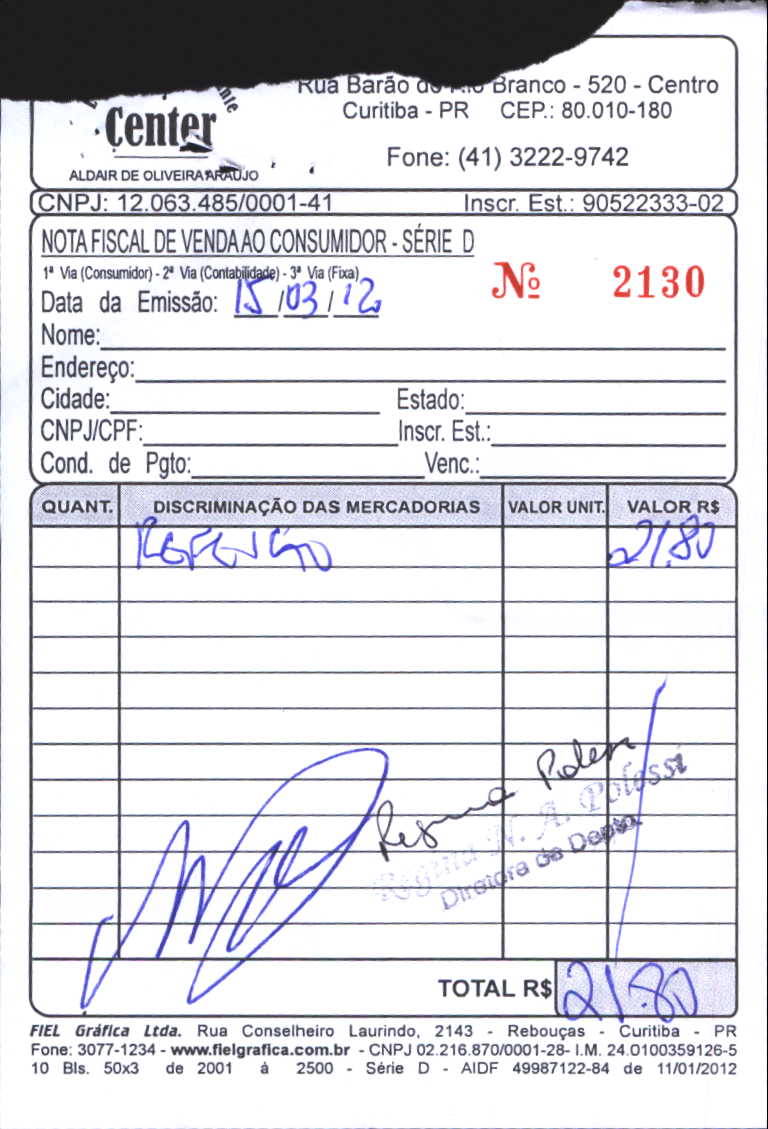 Rua Barão do Rio Branco - 520 - Centro
Curitiba - PR CEP.: 80.010-180
Center
Fone: (41) 3222-9742
ALDAIR DE OLIVEIRA ARAUJO
CNPJ: 12.063.485/0001-41 Inscr. Est.: 90522333-02
NOTA FISCAL DE VENDA AO CONSUMIDOR - SÉRIE D
1ª Via (Consumidor) - 2ª Via (Contabilidade) - 3ª Via (Fixa)
Nº 2130
Data da Emissão: 15/03/12
Nome:
Endereço:
Cidade: Estado:
CNPJ/CPF: Inscr. Est.:
Cond. de Pgto: Venc.:
QUANT. DISCRIMINAÇÃO DAS MERCADORIAS VALOR UNIT. VALOR R$
REFEIÇÃO 21,80
Regina Polessi
Regina N. A. Polessi
Diretora de Depto.
TOTAL R$ 21,80
FIEL Gráfica Ltda. Rua Conselheiro Laurindo, 2143 - Rebouças - Curitiba - PR
Fone: 3077-1234 - www.fielgrafica.com.br - CNPJ 02.216.870/0001-28- I.M. 24.0100359126-5
10 Bls. 50x3 de 2001 à 2500 - Série D - AIDF 49987122-84 de 11/01/2012